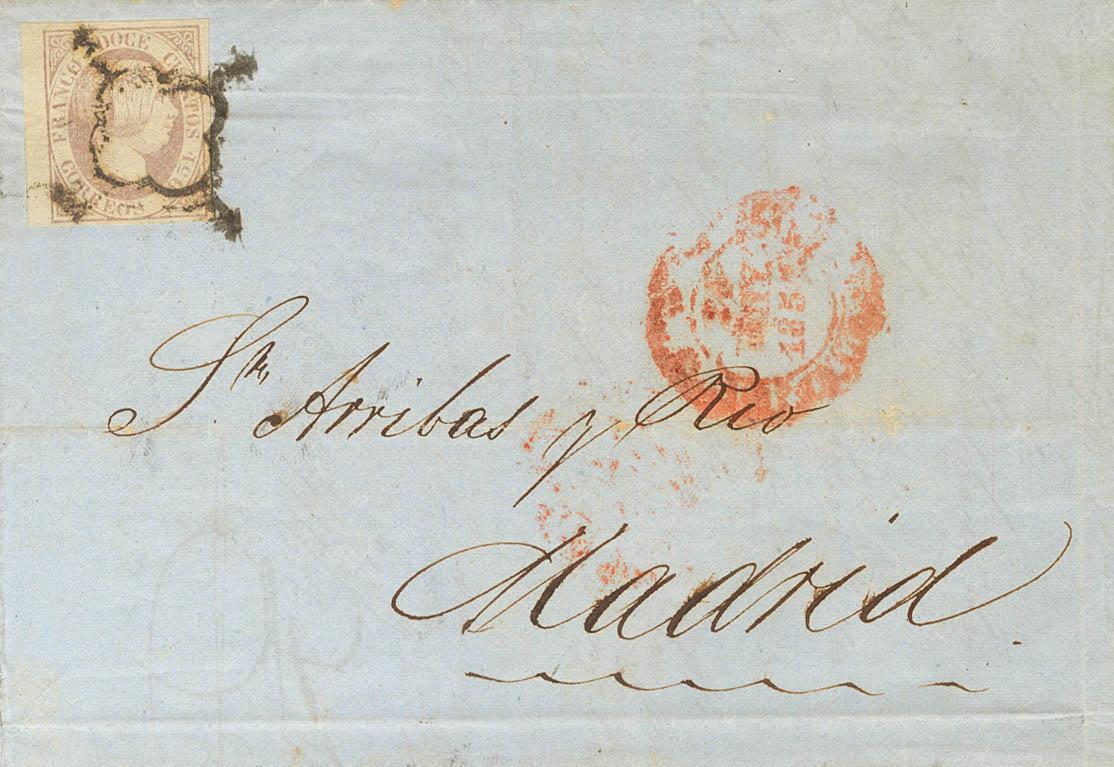 FRANCO DOCE CUARTOS 1851
CORREOS
185
Sr. Arribas y Rio
Madrid.